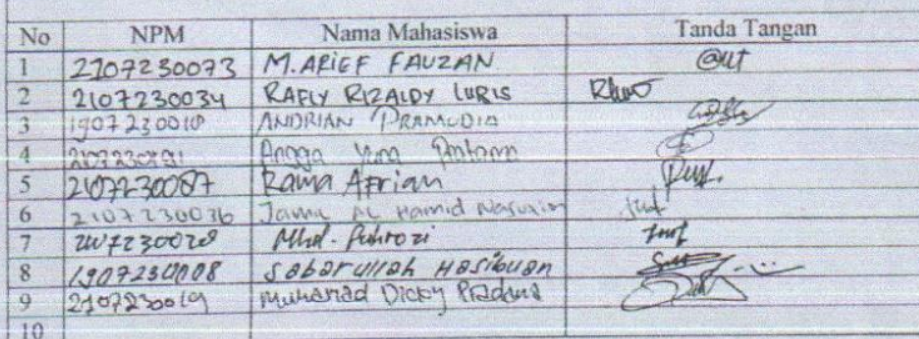 No NPM Nama Mahasiswa Tanda Tangan
1 2107230073 M. ARIEF FAUZAN
2 2107230034 RAFLY RIZALDY LUBIS
3 1907230010 ANDRIAN PRAMUDIA
4 Angga Yuna Pratama
5 2107230087 Rama Afrian
6 2107230036 Jamil AL Hamid Nasution
7 2107230028 Mhd. Fahrozi
8 1907230008 Sabarullah Hasibuan
9 2107230019 Muhamad Dicky Pradana
10